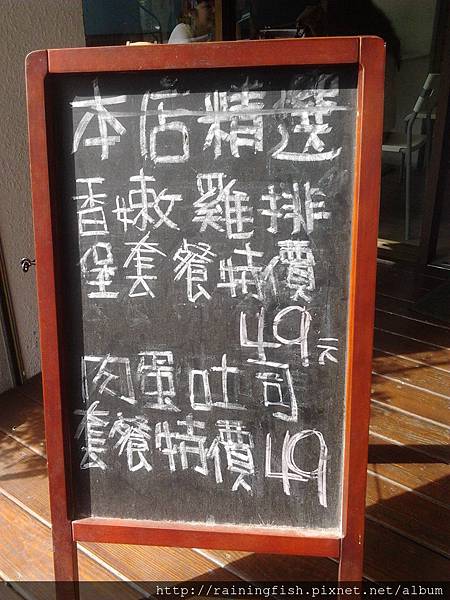 本店精選
香嫩雞排
堡套餐特價
49元
肉蛋吐司
套餐特價49
http://rainingfish.pixnet.net/album